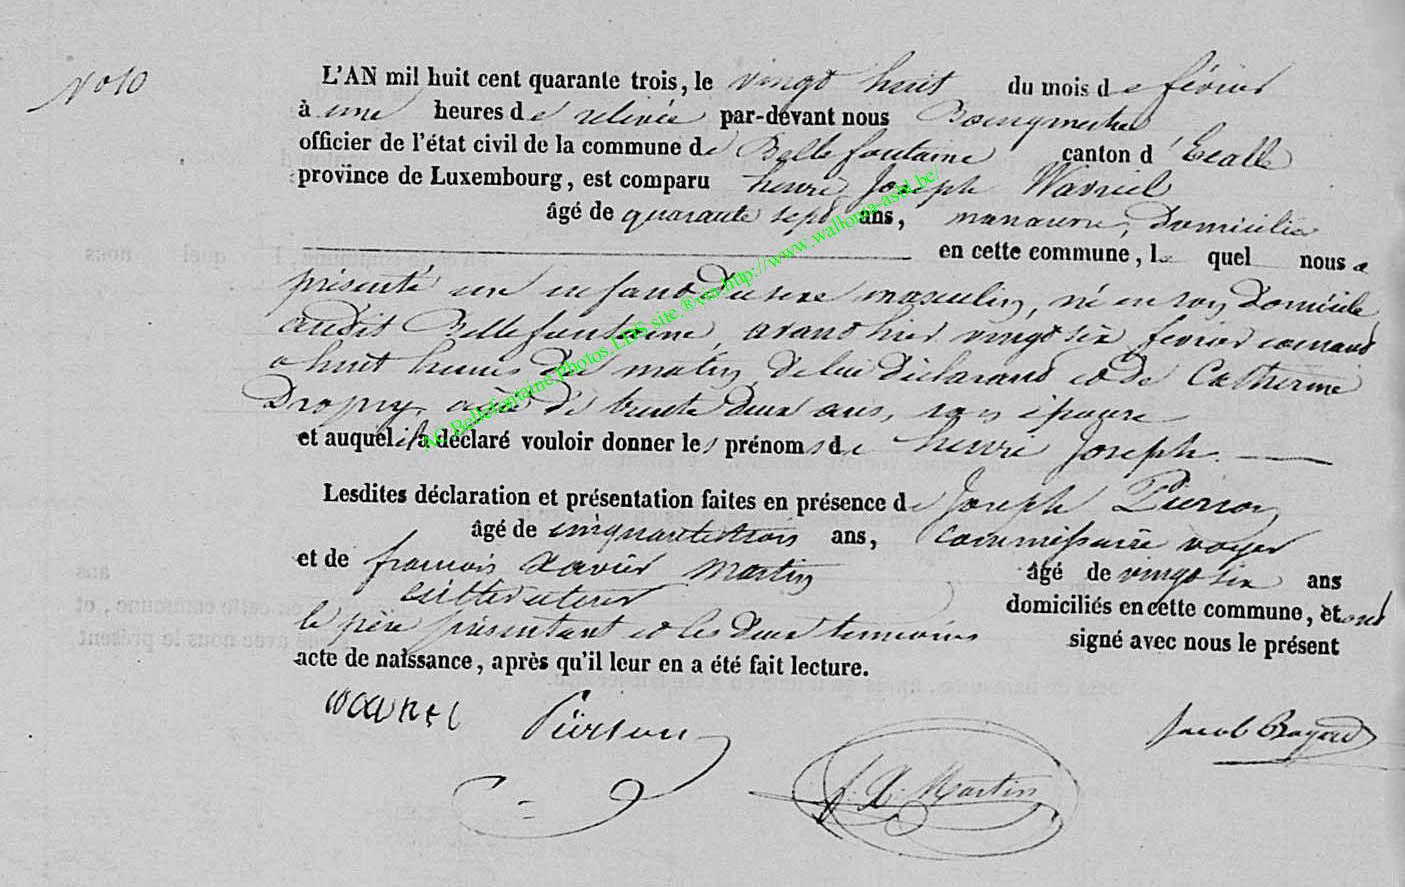 No 10
L'AN mil huit cent quarante trois, le vingt huit du mois de févrièr
à une heures de relivée par-devant nous Bourgmestre
officier de l'état civil de la commune de Bellefontaine canton d'Etalle
province de Luxembourg, est comparu henri Joseph Warnel
âgé de quarante sept ans, manœuvre, domicilié
en cette commune, le quel nous a
présenté un enfant du sexe masculin, né en son domicile
audit Bellefontaine, avant hier vingt six février courant
a huit heures du matin, de lui déclarant et de Catherine
Dropsy, agée de trente deux ans, son épouse
et auquel il a déclaré vouloir donner les prénoms de henri Joseph.
Lesdites déclaration et présentation faites en présence de Joseph Pierson
âgé de cinquante trois ans, commissaire voyer
et de francois Xavier Martin âgé de vingt six ans
cultivateur domiciliés en cette commune, et ont
le père présentant et les deux temoins signé avec nous le présent
acte de naissance, après qu'il leur en a été fait lecture.
warnel Pierson f. X. Martin Jacob
AC Bellefontaine,Photos,LDS site,®via http://www.wallonia-asbl.be/